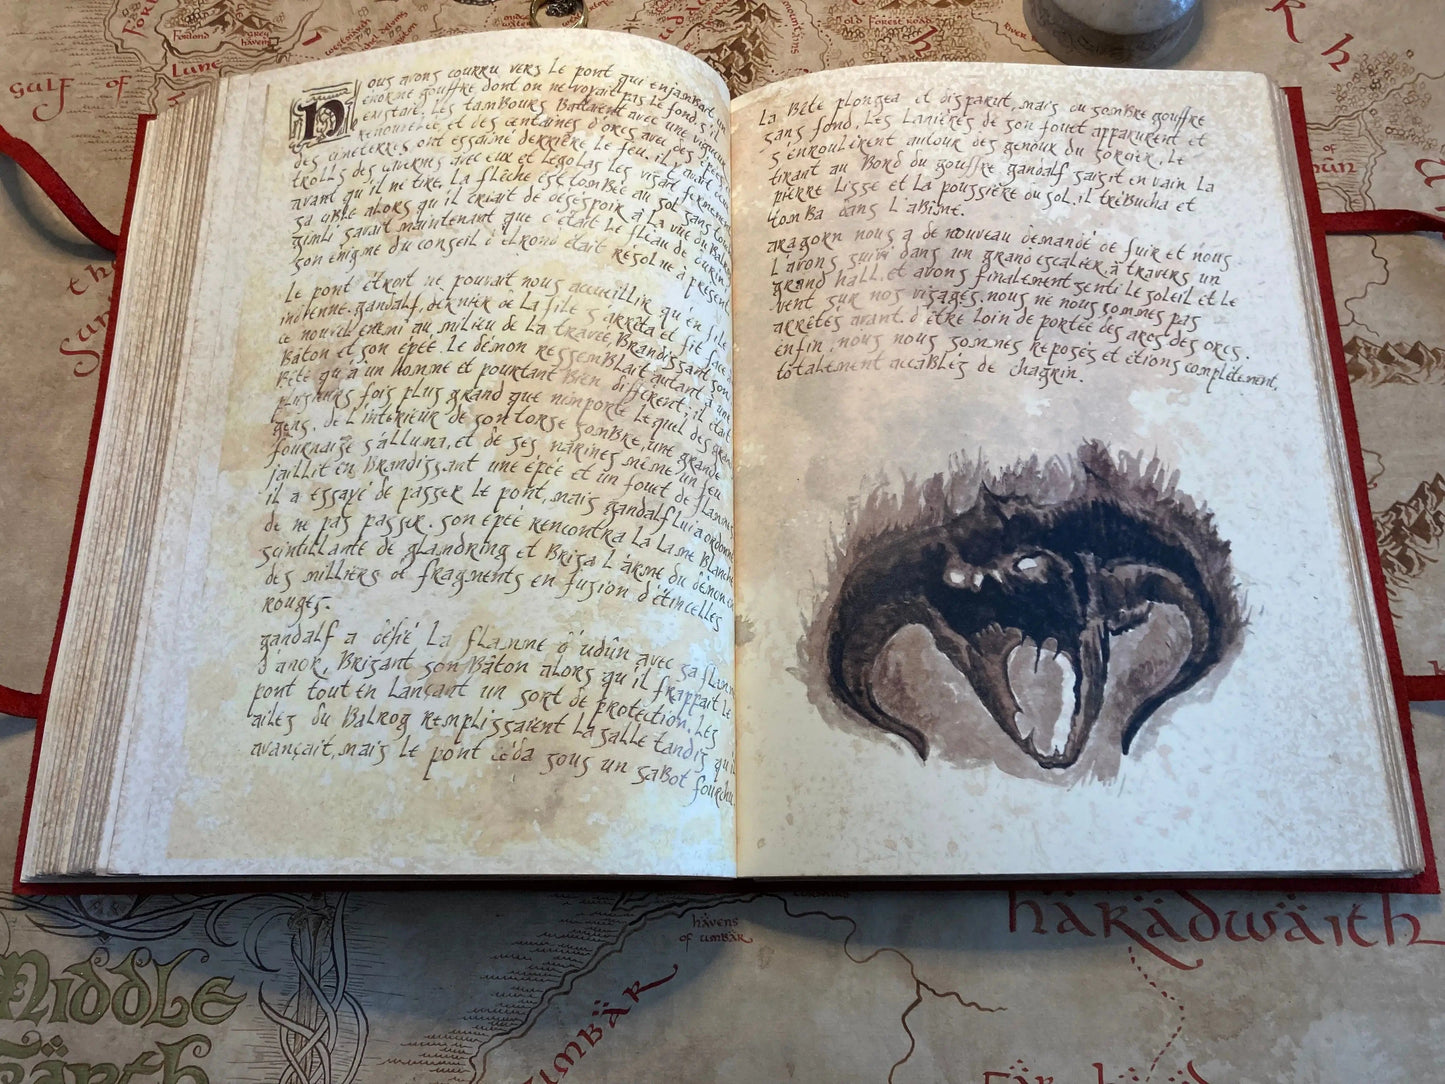 GULF OF LUNE
Forlond
Grey havens
old Forest Road
Nous avons courru vers le pont qui enjambait un
énorme gouffre dont on ne voyait pas le fond, s'il
existait. Les tambours battaient avec une vigueur
renouvelée, et des centaines d'orcs avec des
des cimeterres ont essaimé derrière le feu, il y avait
trolls des cavernes avec eux et Legolas les visait fermement
avant qu'il ne tire. La flèche est tombée au sol sans
sa cible alors qu'il criait de désespoir à la vue du Balrog
gimli savait maintenant que c'était le fléau de Durin,
son énigme du conseil d'Elrond était résolue à présent
Le pont étroit ne pouvait nous accueillir qu'en file
indienne. gandalf, dernier de la file s'arrêta et fit face à
ce nouvel ennemi au milieu de la travée, Brandissant son
Bâton et son épée. Le démon ressemblait autant à une
Bête qu'à un homme et pourtant Bien différent; il était
plusieurs fois plus grand que n'importe lequel des grands
gens. de l'intérieur de son torse sombre, une grande
fournaise s'alluma, et de ses narines même un feu
jaillit en Brandissant une épée et un fouet de flammes
il a essayé de passer le pont, mais gandalf lui a ordonné
de ne pas passer. son épée rencontra la lame Blanche
scintillante de glamdring et Brisa l'arme du démon en
des milliers de fragments en fusion d'étincelles
rouges.
gandalf a défié la flamme d'udûn avec sa flamme
d'anor, Brisant son Bâton alors qu'il frappait le
pont tout en lançant un sort de protection. Les
ailes du Balrog remplissaient la salle tandis qu'il
avançait, mais le pont céda sous un sabot fourchu.
La Bête plongea et disparut, mais du sombre gouffre
sans fond, les lanières de son fouet apparurent et
s'enroulèrent autour des genoux du sorcier, le
tirant au Bord du gouffre gandalf saisit en vain la
pierre lisse et la poussière du sol, il trébucha et
tomba dans l'abîme.
aragorn nous a de nouveau demandé de fuir et nous
l'avons suivi dans un grand escalier, à travers un
grand hall, et avons finalement senti le soleil et le
vent sur nos visages. nous ne nous sommes pas
arrêtés avant d'être loin de portée des arcs des orcs.
enfin, nous nous sommes reposés et étions complètement,
totalement accablés de chagrin.
havens
of umbar
UMBAR
hARADWAITH
MIDDLE
EARTH